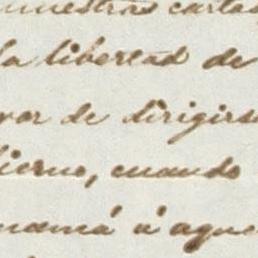 nuestras cartas
la libertad de
vor de dirigirs
ierno, cuando
namá á aque